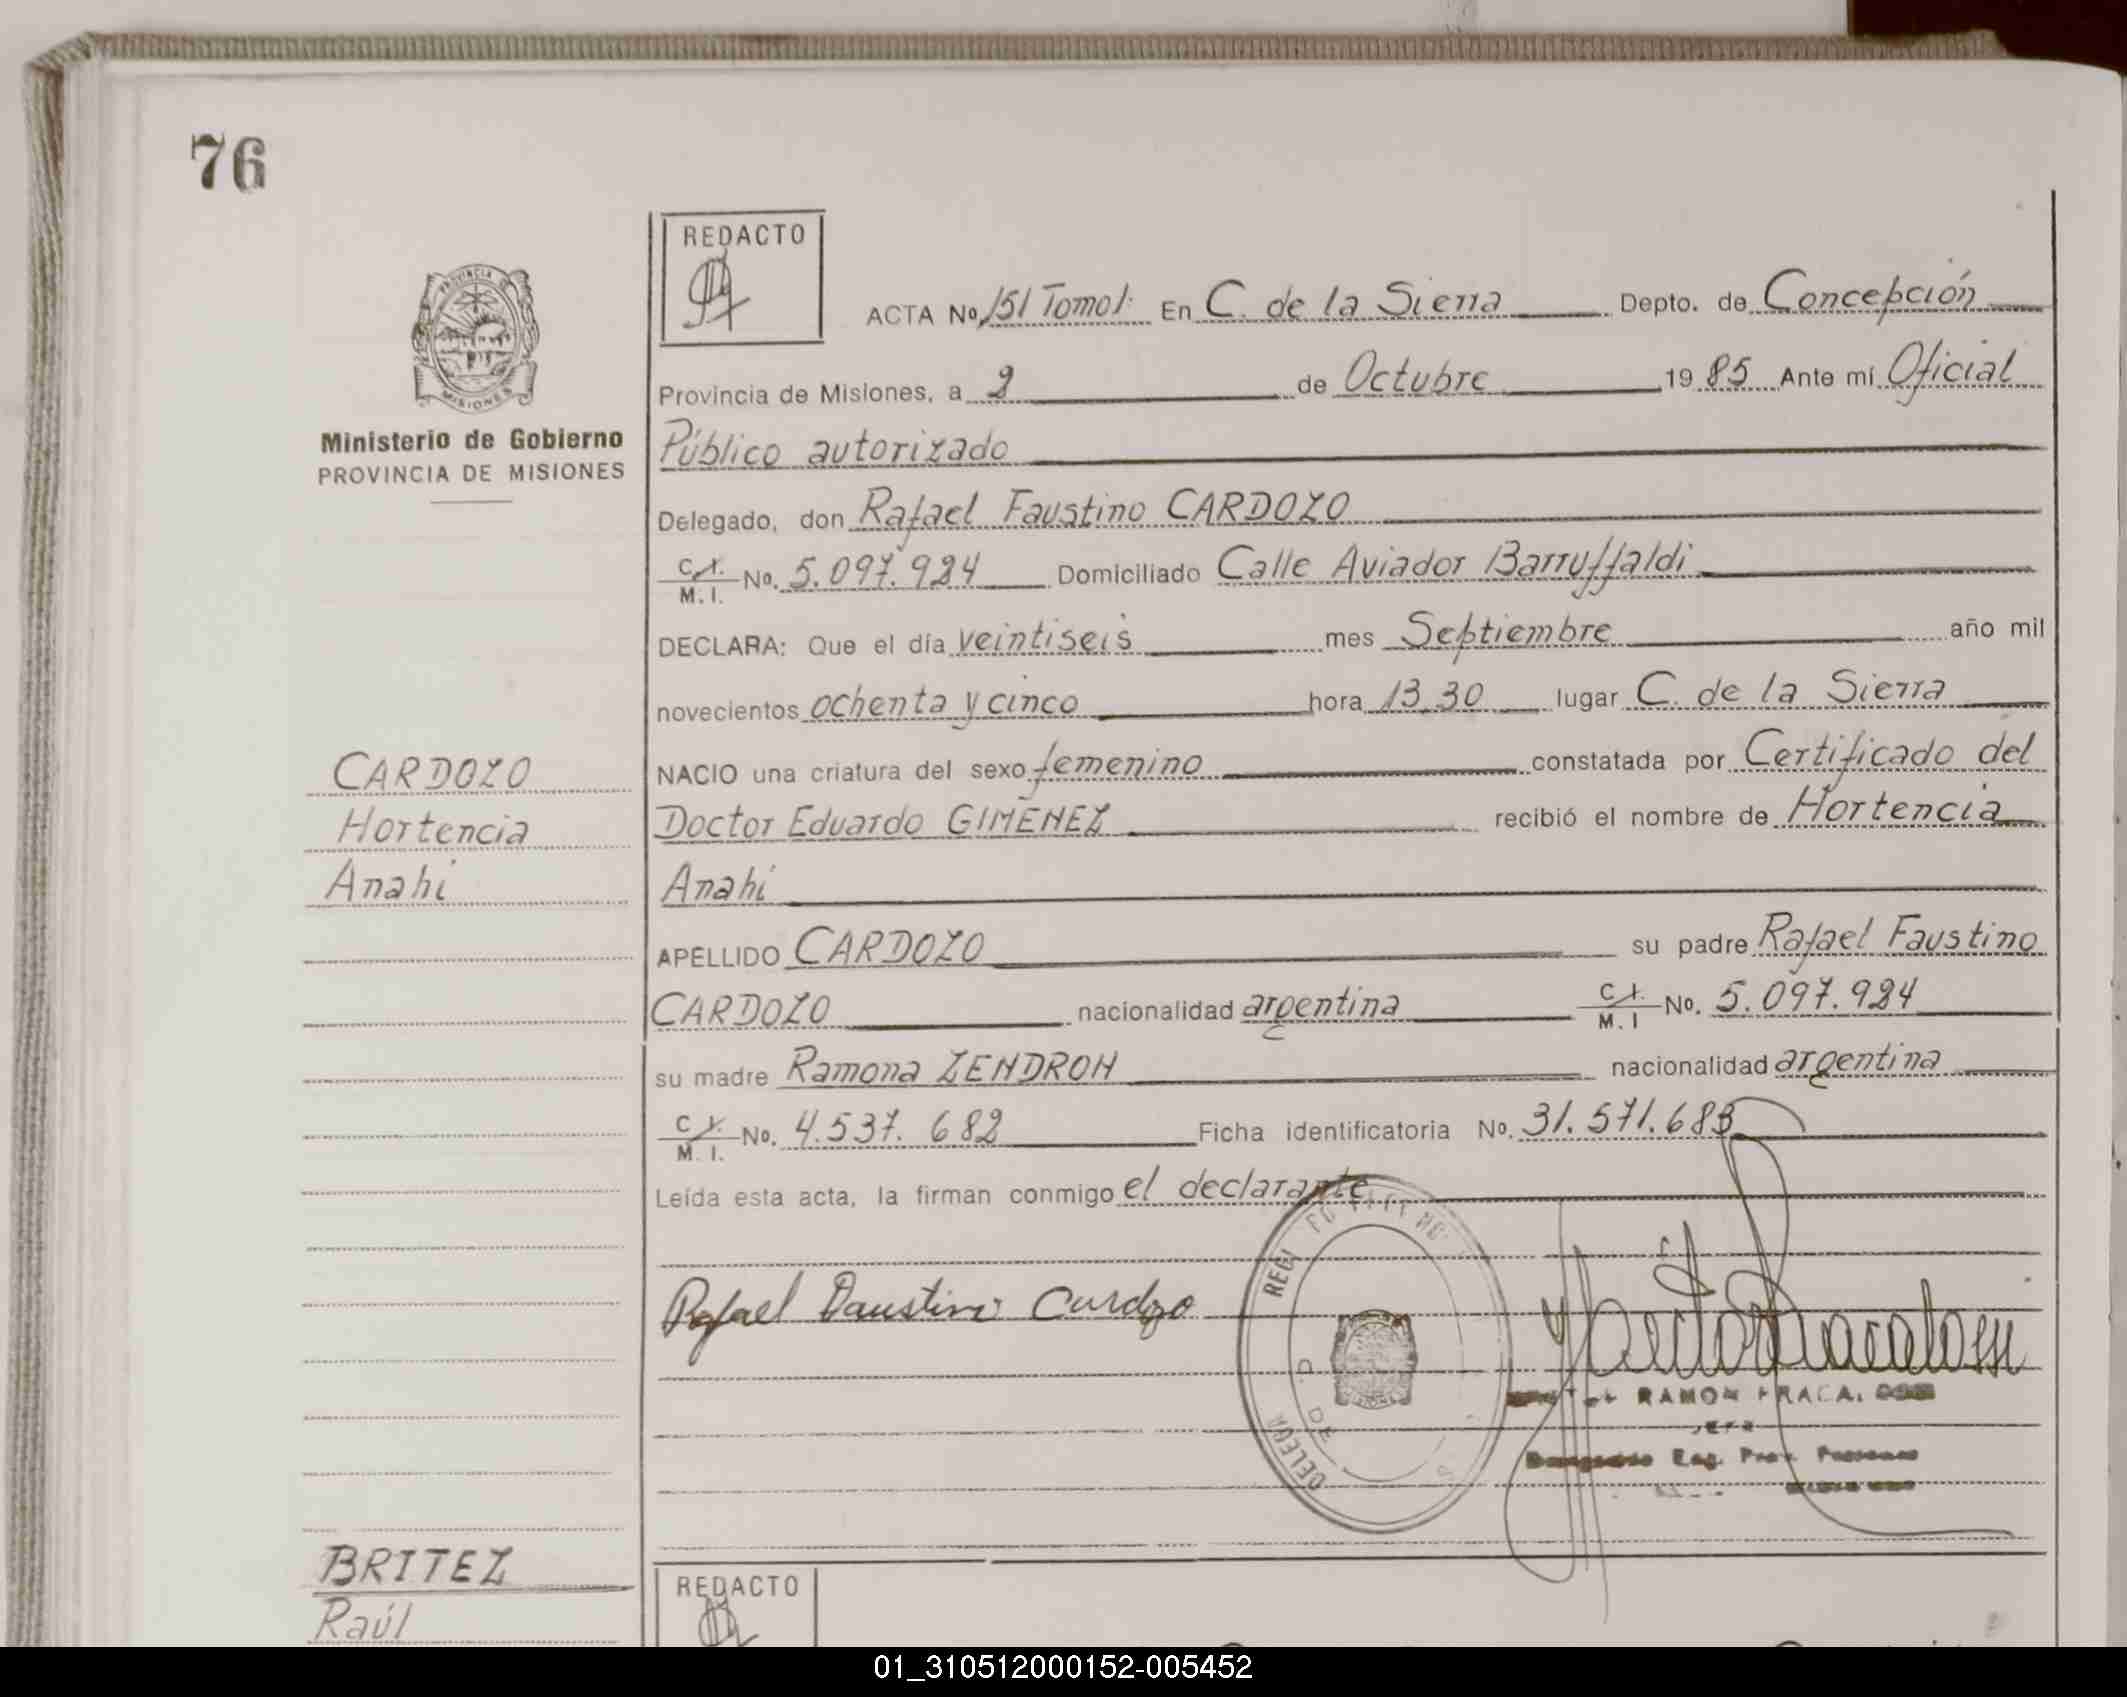 76
REDACTO
PROVINCIA DE
MISIONES
ACTA No. 151 Tomo 1. En C. de la Sierra Depto. de Concepción
Provincia de Misiones, a 2 de Octubre 1985 Ante mí Oficial
Ministerio de Gobierno
PROVINCIA DE MISIONES
Público autorizado
Delegado, don Rafael Faustino CARDOZO
C.I. M.I. No. 5.097.924 Domiciliado Calle Aviador Barruffaldi
DECLARA: Que el día veintiseis mes Septiembre año mil
novecientos ochenta y cinco hora 13,30 lugar C. de la Sierra
CARDOZO
Hortencia
Anahi
NACIO una criatura del sexo femenino constatada por Certificado del
Doctor Eduardo GIMENEZ recibió el nombre de Hortencia
Anahi
APELLIDO CARDOZO su padre Rafael Faustino
CARDOZO nacionalidad argentina C.I. M.I No. 5.097.924
su madre Ramona ZENDRON nacionalidad argentina
C.I. M.I. No. 4.537.682 Ficha identificatoria No. 31.571.683
Leída esta acta, la firman conmigo el declarante
Rafael Faustino Cardozo
RAMON
BRITEZ
Raúl
REDACTO
01_310512000152-005452